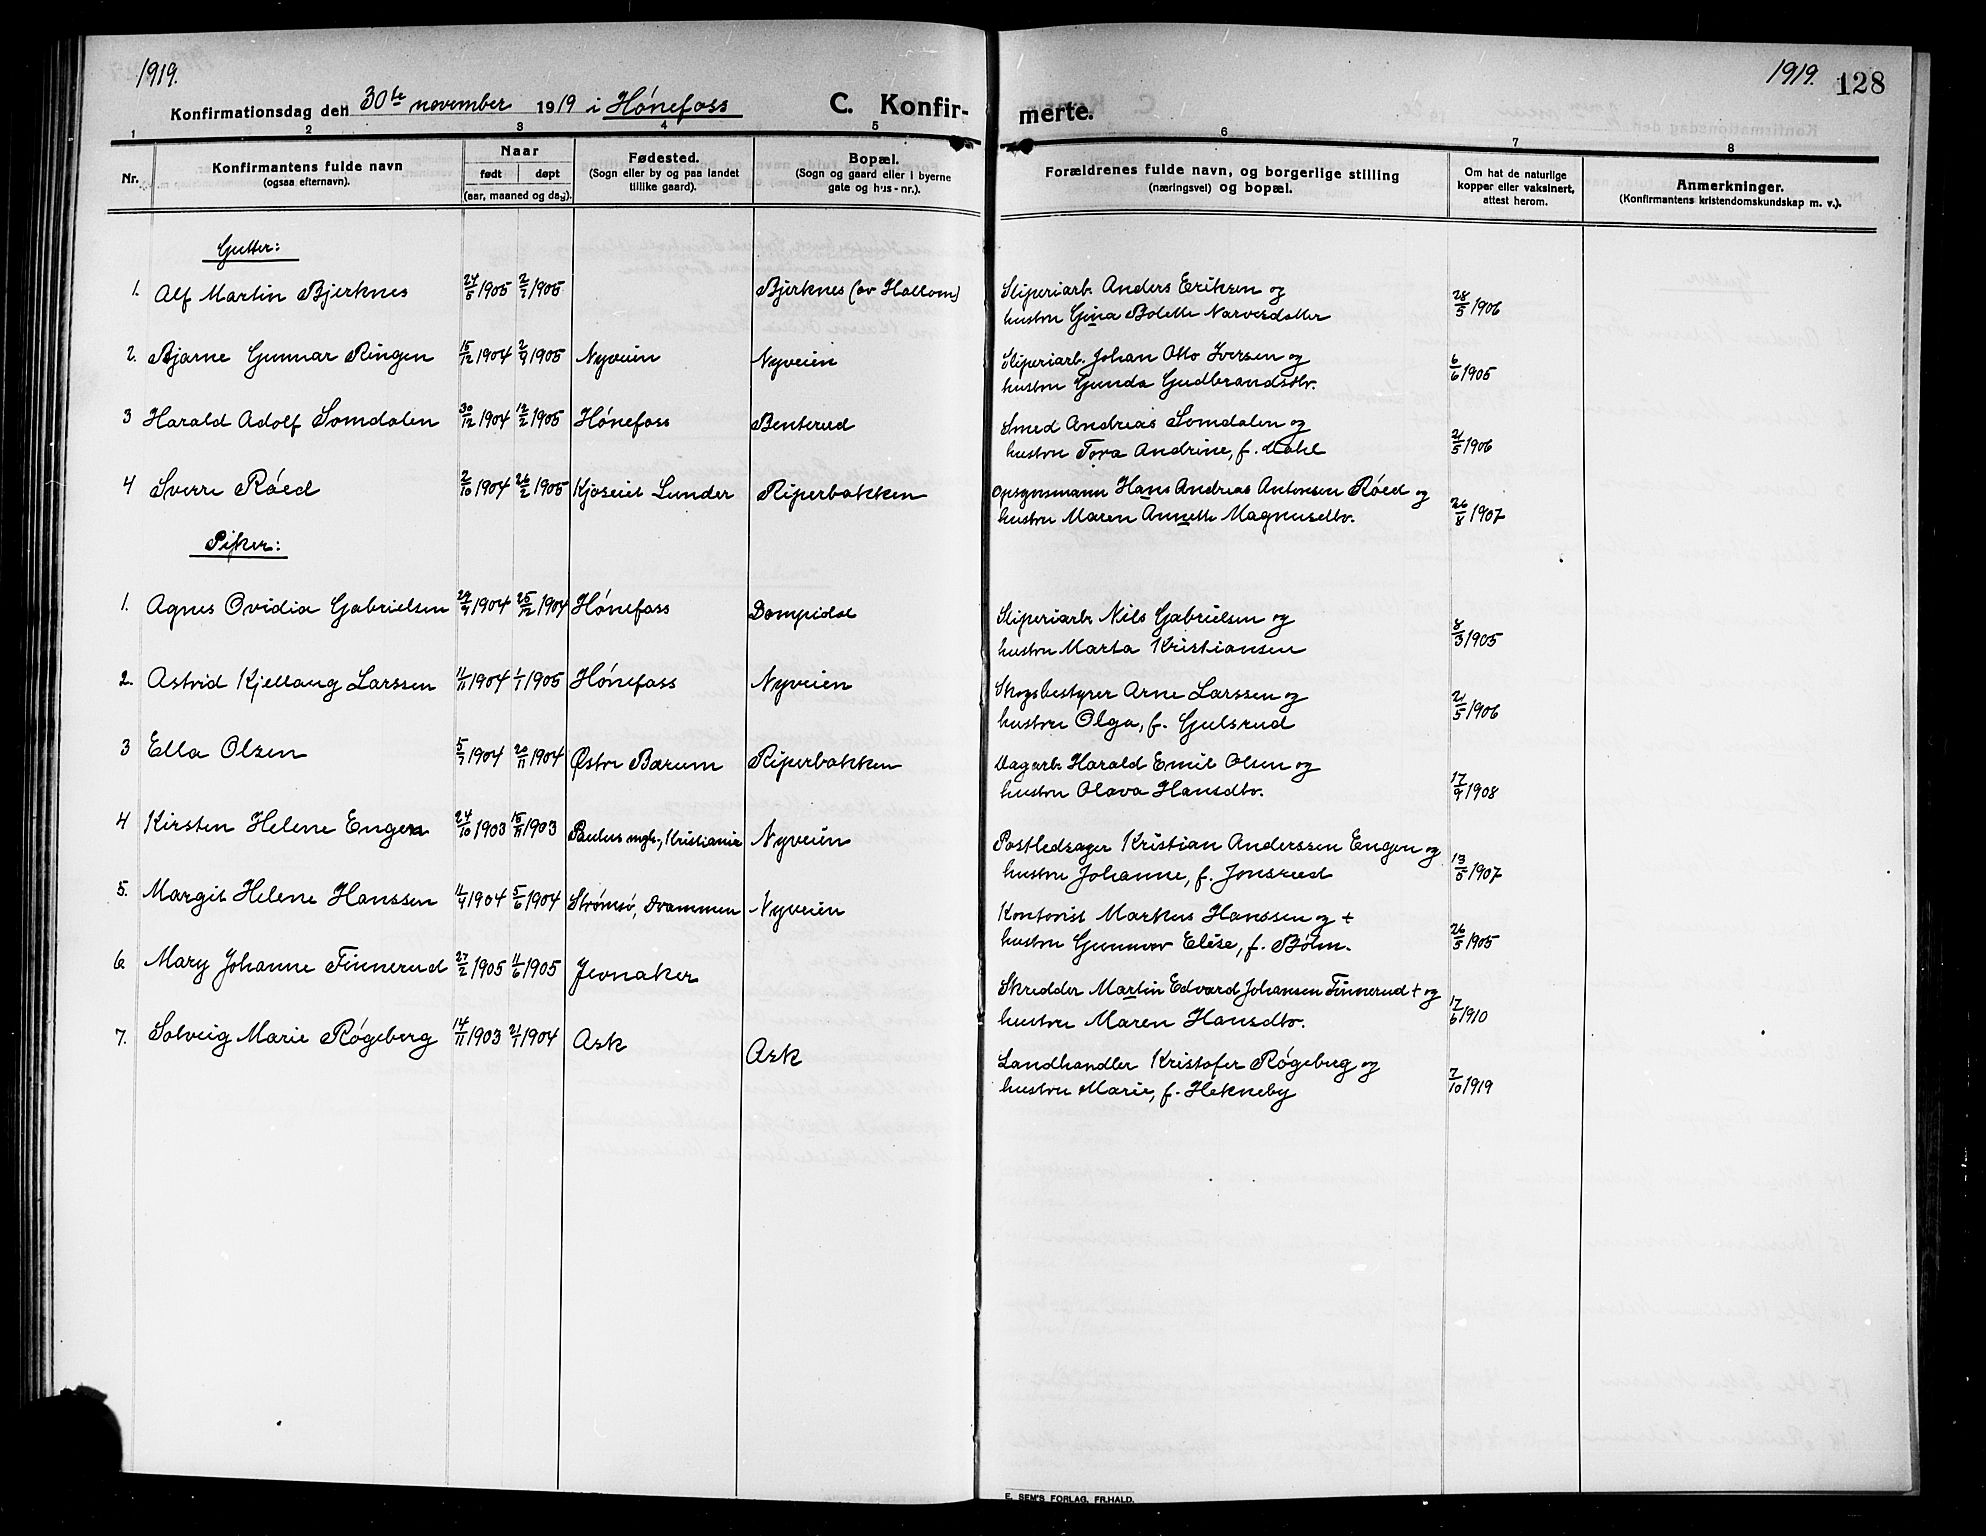 1919.
Konfirmationsdag den 30te november 1919 i Hónefoss
C. Konfirmerte.
1919. 128
1 2 3 4 5 6 7 8
Nr.
Konfirmantens fulde navn
(ogsaa efternavn).
Naar
født døpt
(aar, maaned og dag).
Fødested.
(Sogn eller by og paa landet
tillike gaard).
Bopæl.
(Sogn og gaard eller i byerne
gate og hus-nr.).
Forældrenes fulde navn, og borgerlige stilling
(næringsvei) og bopæl.
Om hat de naturlige
kopper eller vaksinert,
attest herom.
Anmerkninger.
(Konfirmantens kristendomskundskap m. v.).
Gutter:
1. Alf Martin Bjerknes 24/5 1905 2/7 1905 Bjerknes (av Hallom) Sliperiarb. Anders Eriksen og
hustru Gina Bolette Narvesdatter 28/5 1906
2. Bjarne Gunnar Ringen 15/12 1904 2/4 1905 Nyveien Nyveien Sliperiarb. Johan Otto Iversen og
hustru Gunda Gudbrandsdtr. 6/6 1905
3 Harald Adolf Somdalen 30/12 1904 12/2 1905 Hónefoss Benterud Smed Andreas Somdalen og
hustru Tora Andrine, f. Dahl 2/5 1906
4 Sverre Róed 2/10 1904 26/2 1905 Kjoseie Lunder Riperbakken Opsynsmann Hans Andreas Antonsen Róed og
hustru Maren Annette Magnusdtr. 26/8 1907
Piker:
1. Agnes Ovidia Gabrielsen 29/9 1904 25/12 1904 Hónefoss Dampidal Sliperiarb. Nils Gabrielsen og
hustru Marta Kristiansen 8/3 1905
2. Astrid Kjellaug Larssen 11/11 1904 1/1 1905 Hónefoss Nyveien Skogsbestyrer Arne Larssen og
hustru Olga, f. Gulsrud 2/5 1906
3 Ella Olsen 5/7 1904 20/11 1904 Østre Bærum Riperbakken Dagarb. Harald Emil Olsen og
hustru Olava Hansdtr. 17/9 1908
4 Kirsten Helene Engen 24/10 1903 15/11 1903 Paulus mgh., Kristiania Nyveien Postledsager Kristian Anderssen Engen og
hustru Johanne, f. Jonsrud 13/5 1907
5. Margit Helene Hanssen 11/4 1904 5/6 1904 Strømsø, Drammen Nyveien Kontorist Markus Hanssen og +
hustru Gunnvor Elise, f. Bølm. 26/5 1905
6. Mary Johanne Finnerud 27/2 1905 11/6 1905 Jevnaker Skredder Martin Edvard Johansen Finnerud + og
hustru Maren Hansdtr. 17/6 1910
7. Solveig Marie Røgeberg 14/11 1903 21/1 1904 Ask Ask Landhandler Kristofer Røgeberg og
hustru Marie, f. Hekneby 7/10 1919
E. SEM'S FORLAG, FR.HALD.